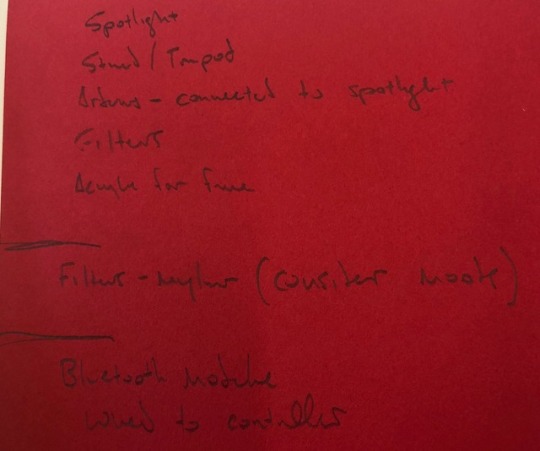 Spotlight
Stand / Tripod
Arduno - connected to spotlight
Filters
for
Filters - (consider mode)
Bluetooth Module
Wired to controller